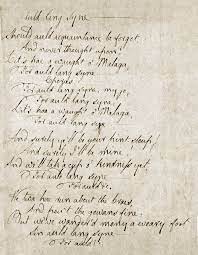 Auld lang syne
Should auld remembrance be forgot
And never thought upon
Let's hae a waught o' Malaga,
For auld lang syne
Chorus.
For auld lang syne, my jo,
For auld lang syne
Let's hae a waught o' Malaga,
For auld lang syne
And surely ye'll be your pint stoup,
And surely I'll be mine
And we'll tak a cup o' kindness yet
For auld &c.
We twa hae run about the braes,
And the gowans fine
But we've wander'd mony a weary foot
Sin auld lang syne
For auld &c.